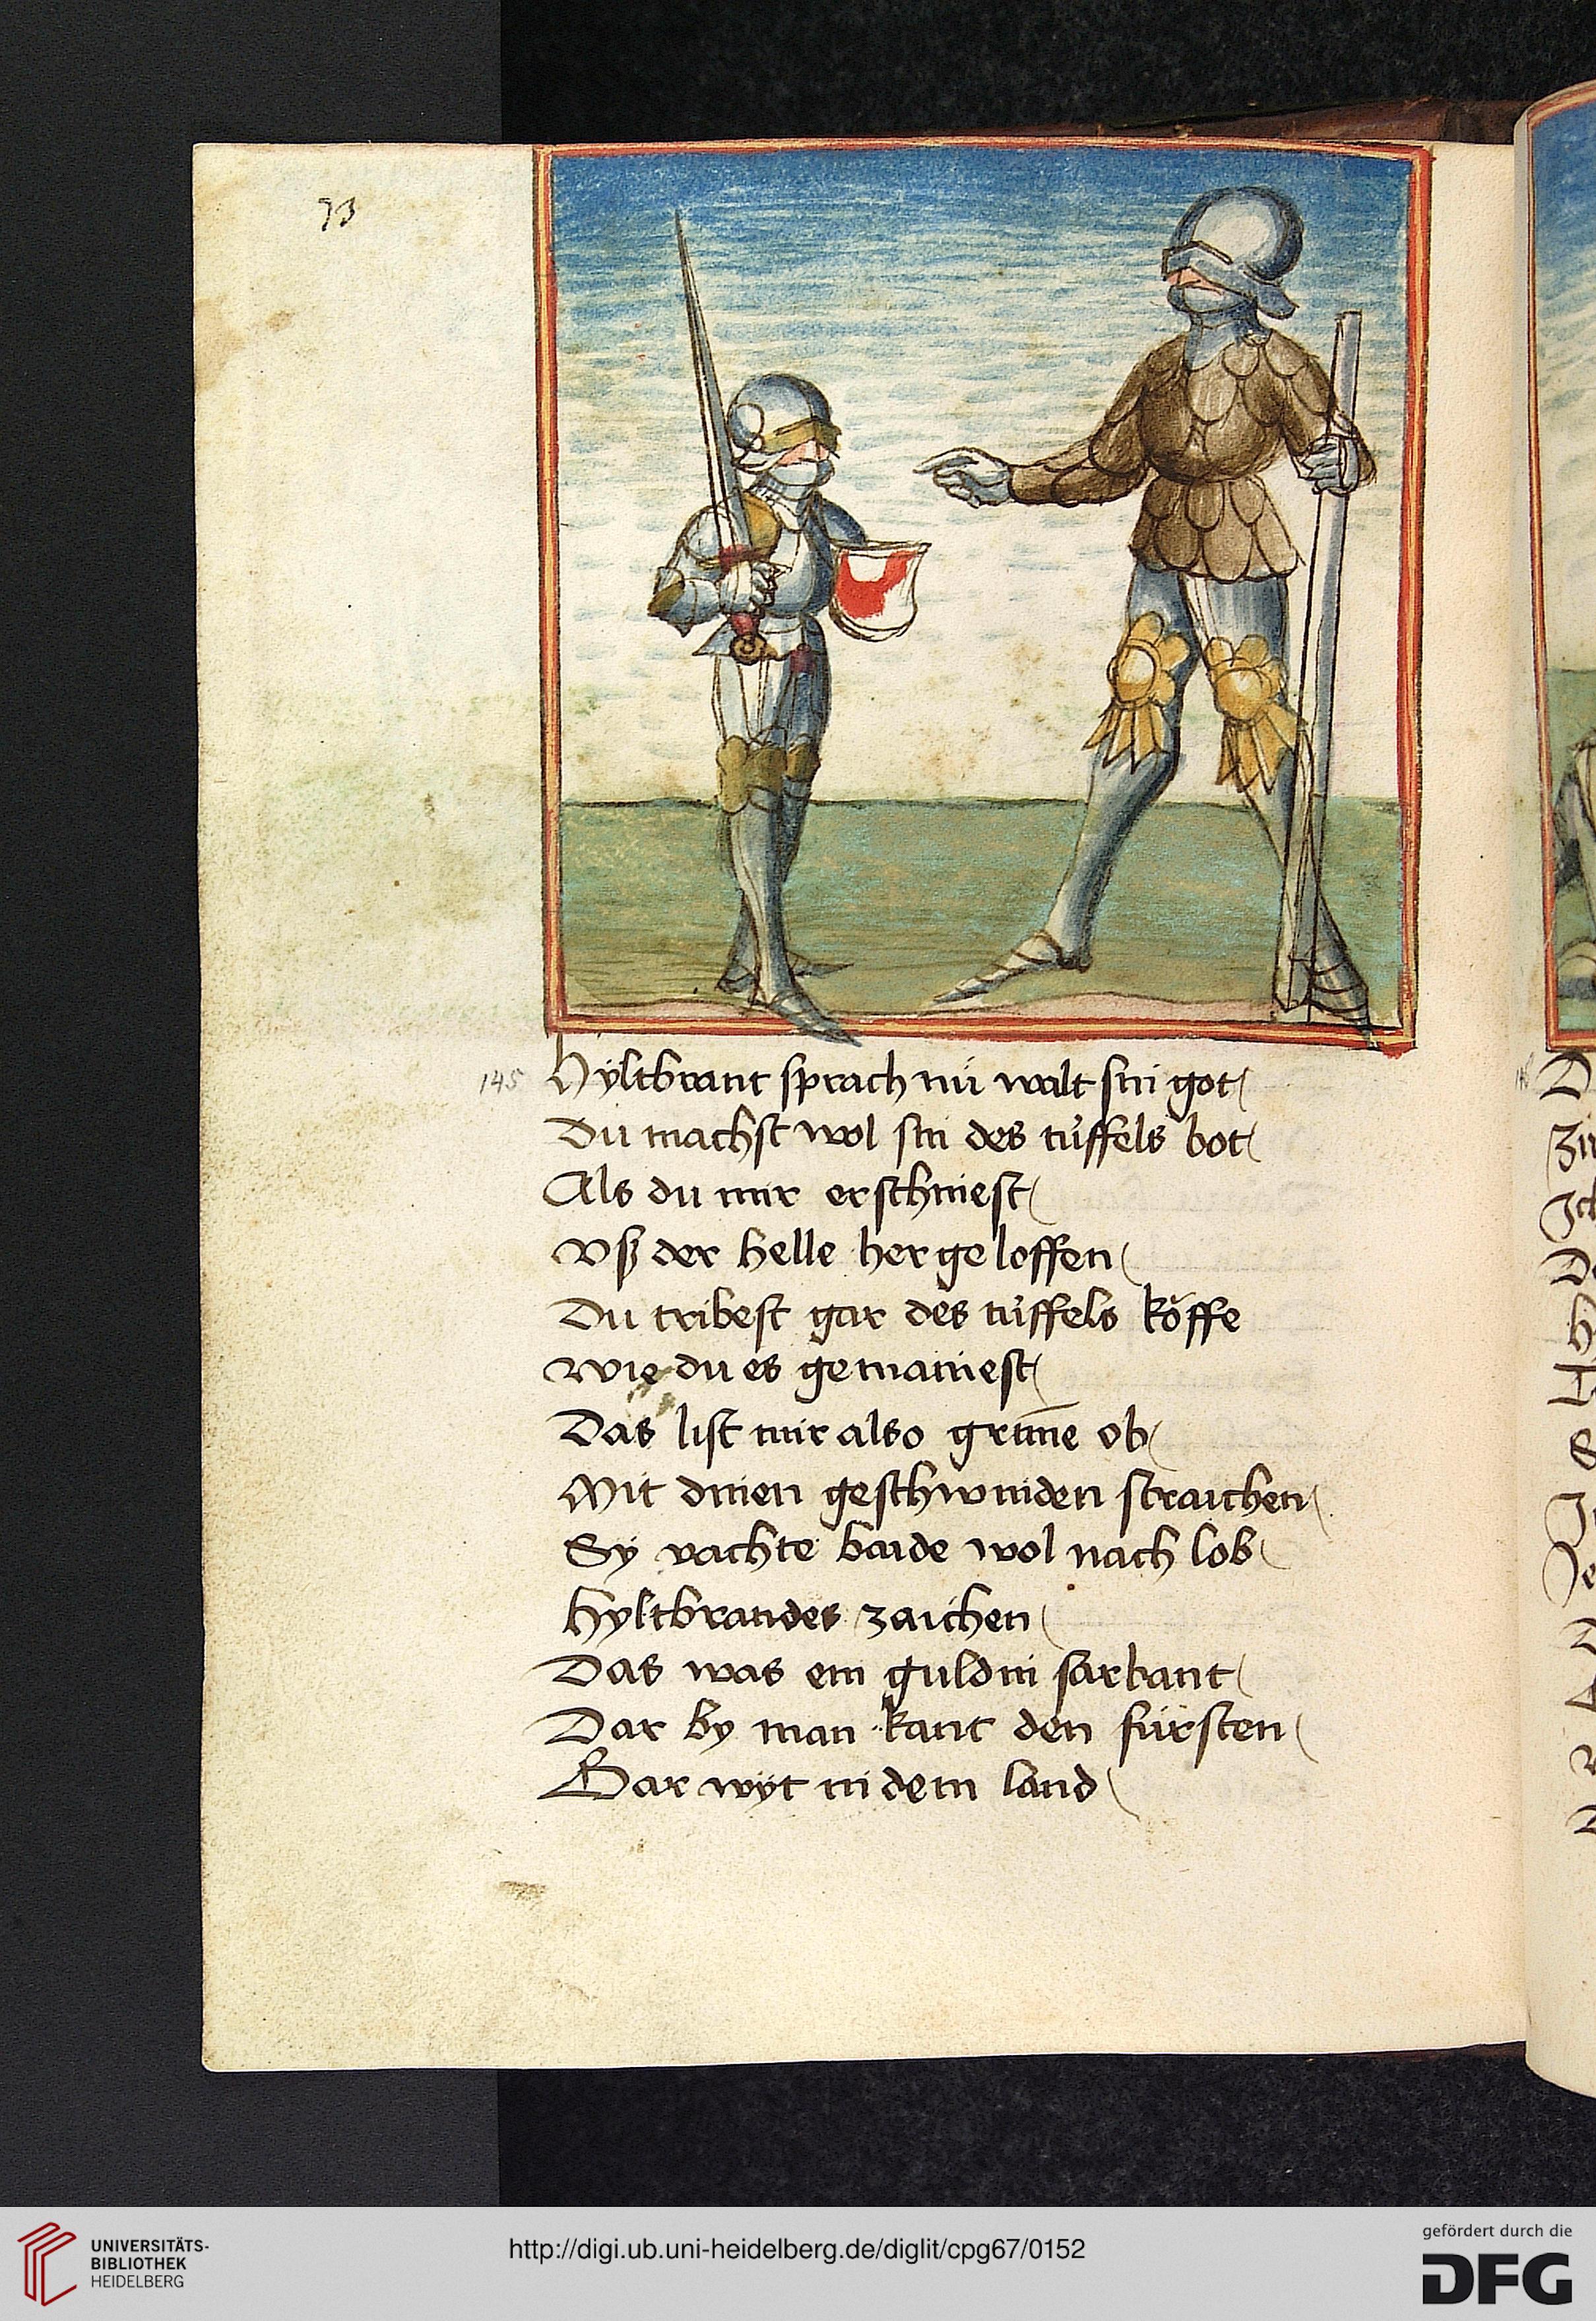 93
145
Hyltbrant sprach nü walt sin got
Du machst wol sin des tüffels bot
Als du mir erschinest
Vß der helle her geloffen
Du tribest gar des tüffels köffe
Wie du es gemainest
Das list mir also grim̅e ob
Mit dinen geschwinden straichen
Sy vachte baide wol nach lob
Hyltbrandes zaichen
Das was ein guldin sarbant
Dar by man kant den fürsten
Gar wyt in dem land
UNIVERSITÄTS-
BIBLIOTHEK
HEIDELBERG
http://digi.ub.uni-heidelberg.de/diglit/cpg67/0152
gefördert durch die
DFG